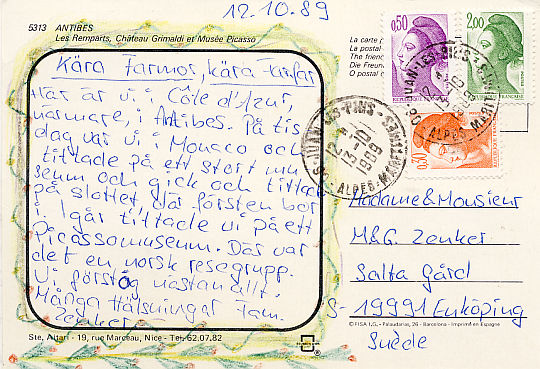 12.10.89
5313 ANTIBES
Les Remparts, Château Grimaldi et Musée Picasso
Kära farmor, kära Farfar
Här är vi i Côte d'Azur,
närmare, i Antibes. På tis
dag var vi i Monaco och
tittade på ett stort mu
seum och gick och tittade
på slottet, där fürsten bor
i. Igår tittade vi på ett
Picassomuseum. Där var
det en norsk resegrupp.
Vi förstog nästan allt.
Många Hälsningar Fam.
Zenker
Ste. Altari - 19, rue Marceau, Nice - Tel. 62.07.82
La carte
La postal
The frien
Die Freun
O postal
0,50
2,00
0,30
JUAN-LES-PINS
ALPES-MARITIMES
12 H
13-10
1989
Madame & Monsieur
M&G. Zenker
Salta Gård
S-19991 Enköping
Suède
© FISA I.G. - Palaudarias, 26 - Barcelona - Imprimé en Espagne